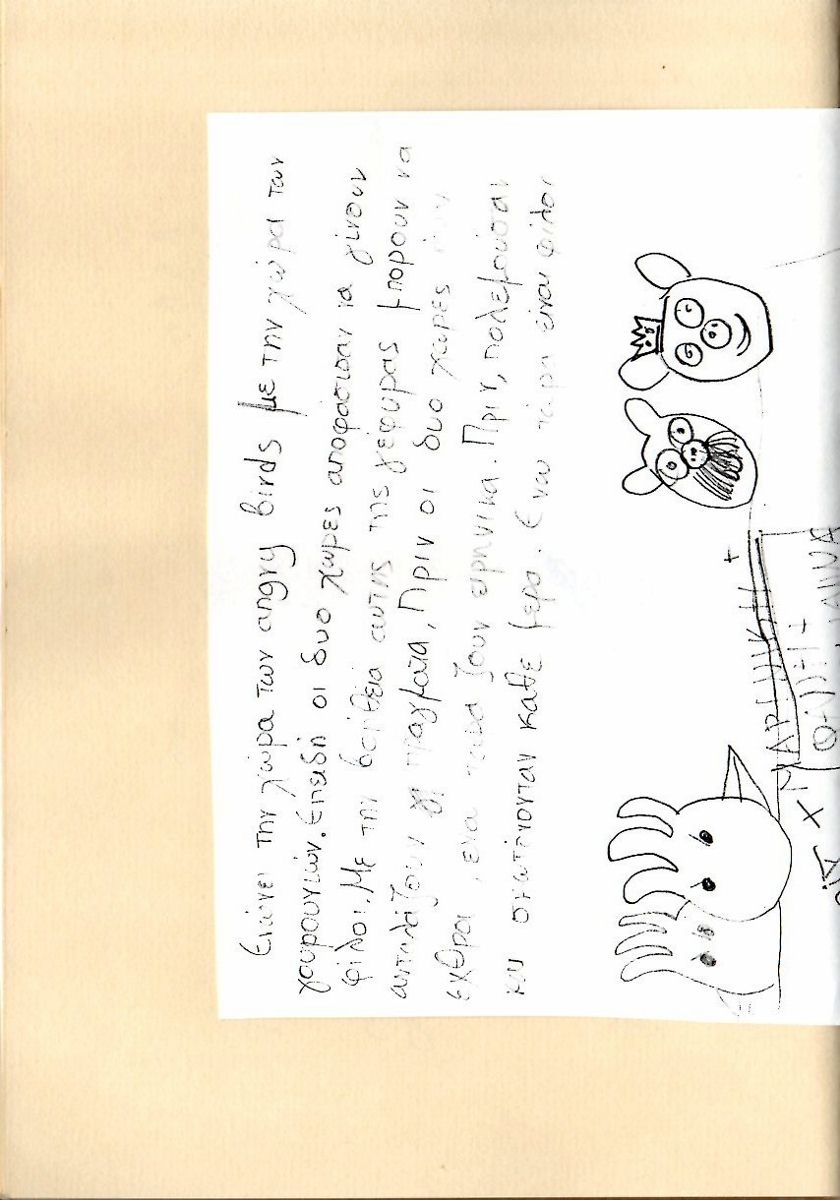 Ενώνει την χώρα των angry birds με την χώρα των
γουρουνιών. Επειδή οι δυο χωρες αποφάσισαν να γίνουν
φίλοι. Με την βοήθεια αυτης της γέφυρας μπορουν να
ανταλάζουν πραγματα. Πριν οι δυο χωρες
εχθροι, ενω τωρα ζουν ειρηνικα. Πριν, πολεμούσαν
και σκωτόνονταν καθε μερα. Ενω τώρα είναι φίλοι
ΜΑΡΣΙΚΗ +